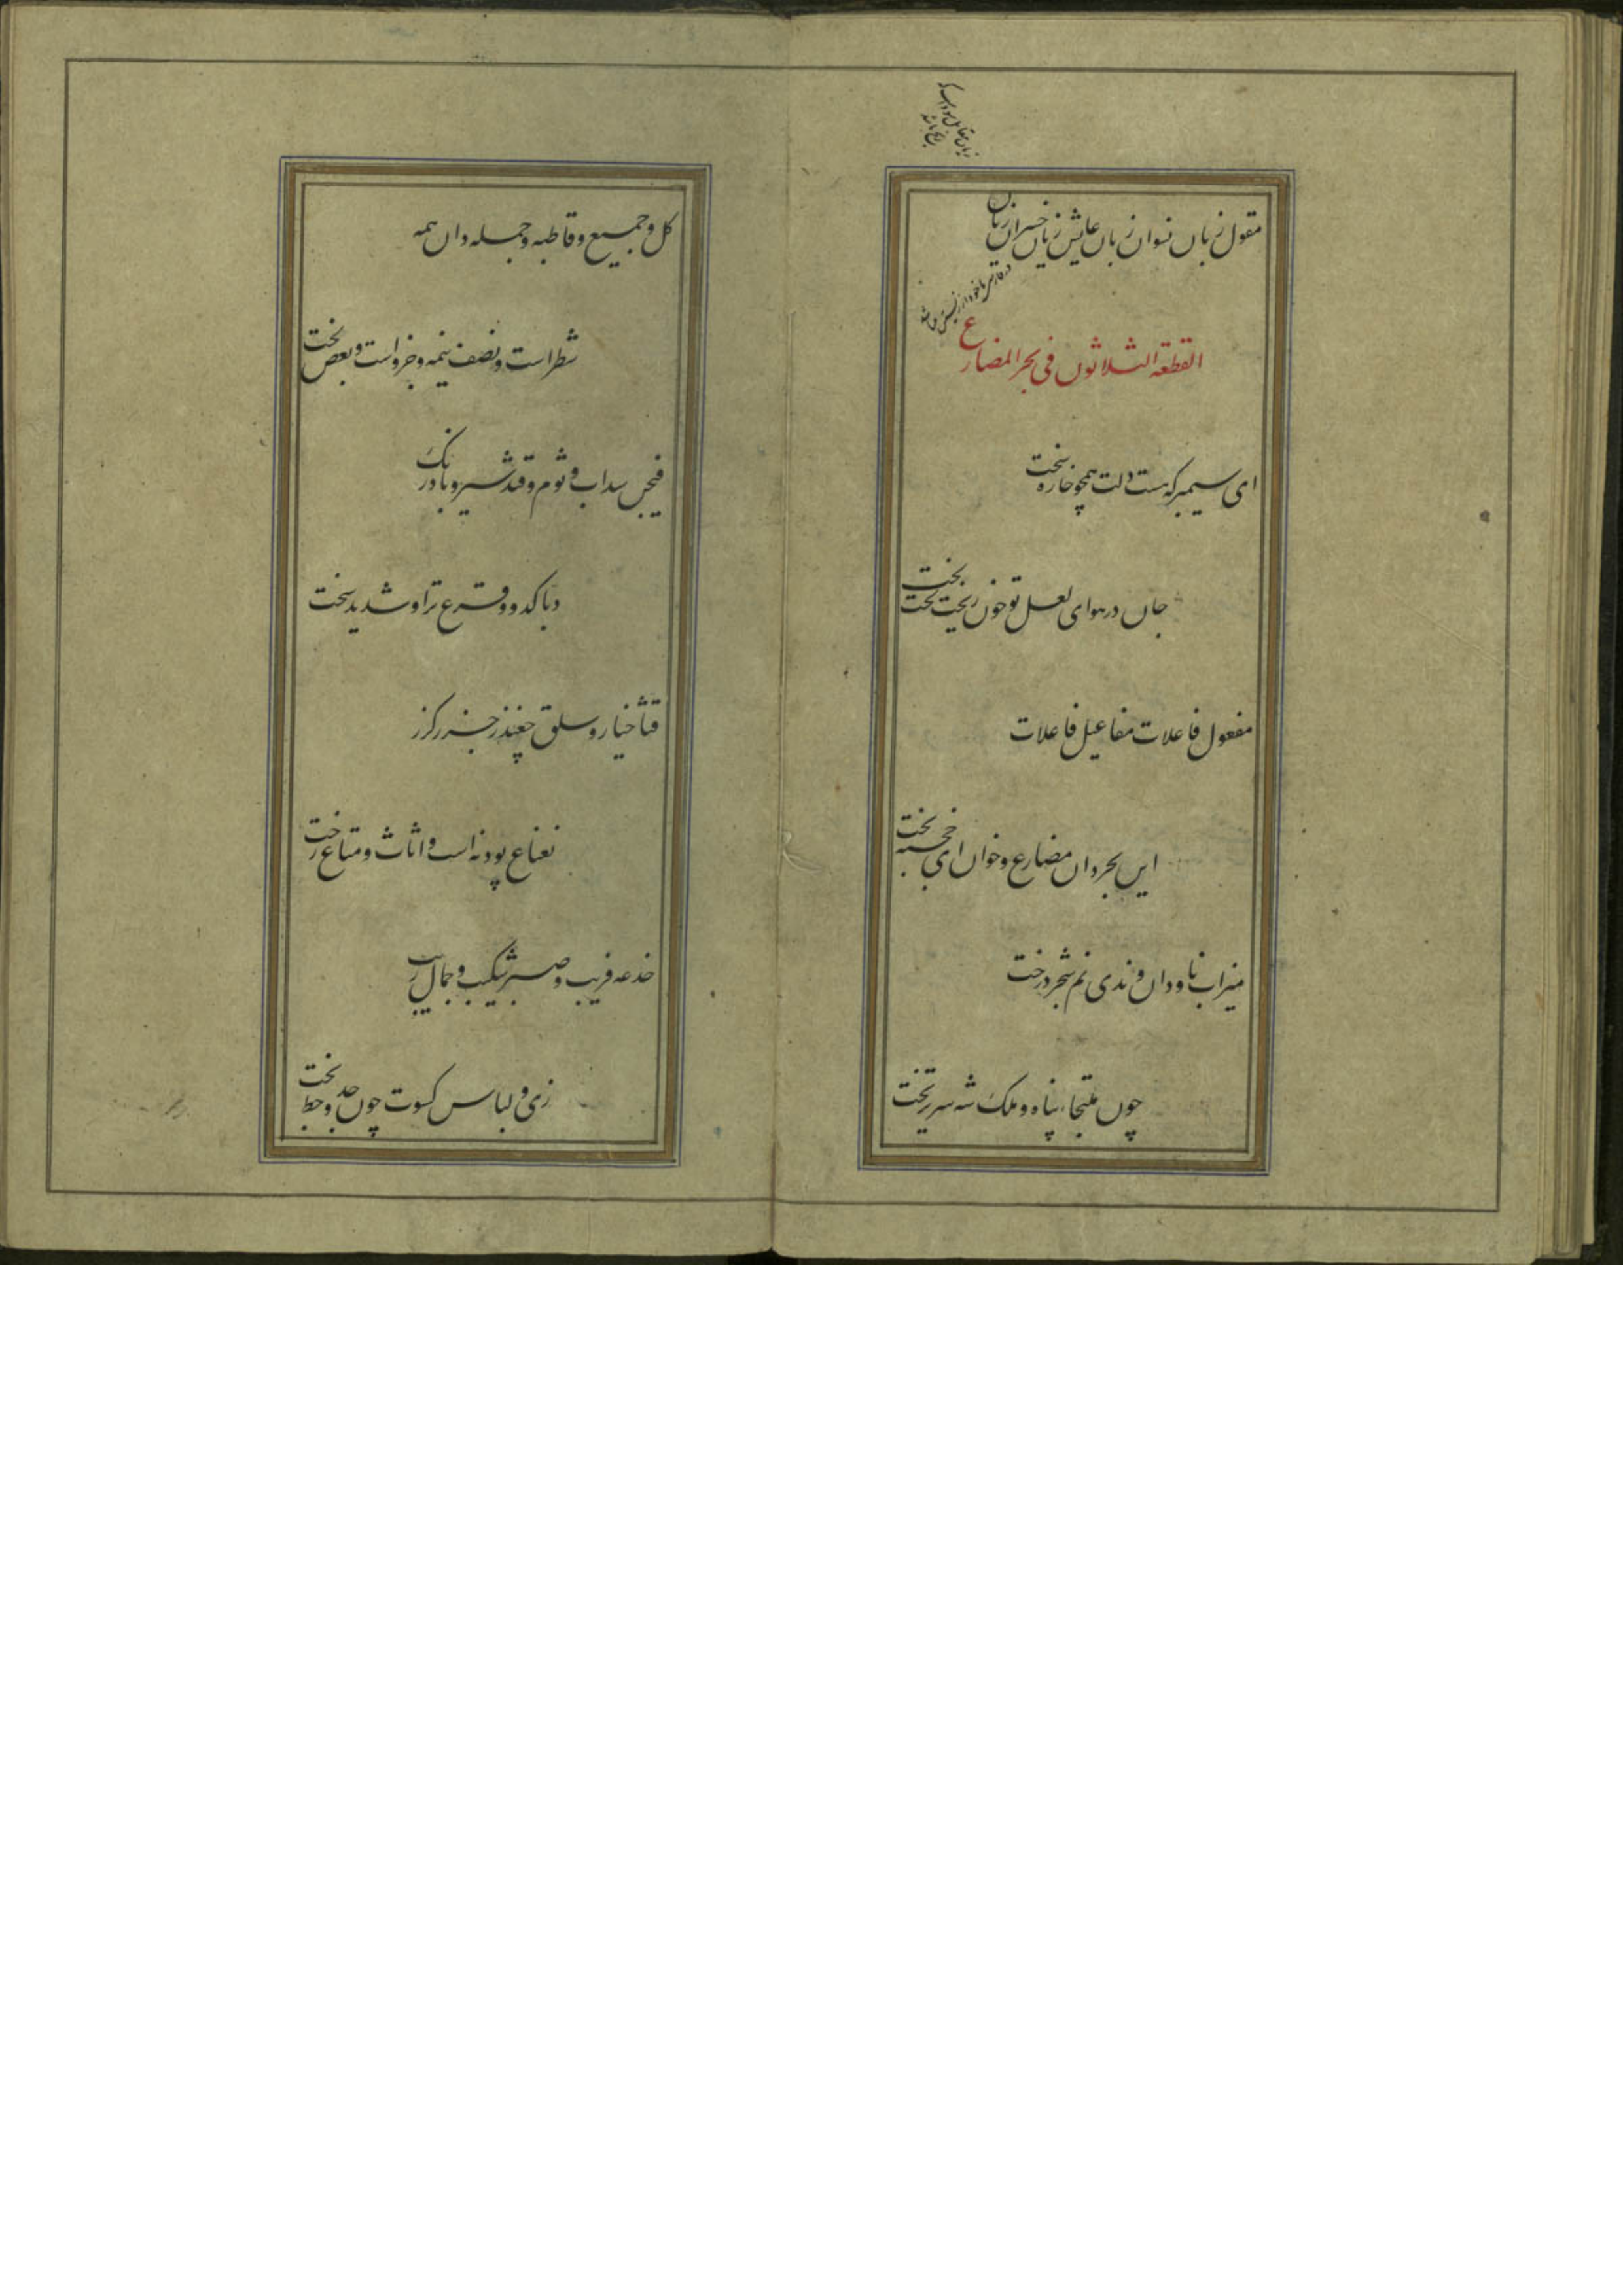 مقول زبان نسوان زنان عایش زیان خسران زیان
القطعة الثلاثون فی بحر المضارع
ای سیمبر که هست دلت همچو خاره سخت
جان در هوای لعل تو خون ریخت لخت لخت
مفعول فاعلات مفاعیل فاعلات
این بحر دان مضارع و خوان ای خجسته بخت
میزاب ناودان و ندی نم شجر درخت
چون ملتجاء پناه و ملک شه سریر تخت
کل و جمیع و قاطبه و جمله دان همه
شطر است و نصف نیمه و جزو است و بعض لخت
فیجن سداب و ثوم و قثد سیر و بادرنک
دبا کدو و قرع ترا و شدید سخت
قثا خیار و سلق چغندر جزر کزر
نعناع پودنه است و اثاث و متاع رخت
خدعه فریب و صبر شکیب و جمال زیب
زی و لباس کسوت چون جد و حظ بخت